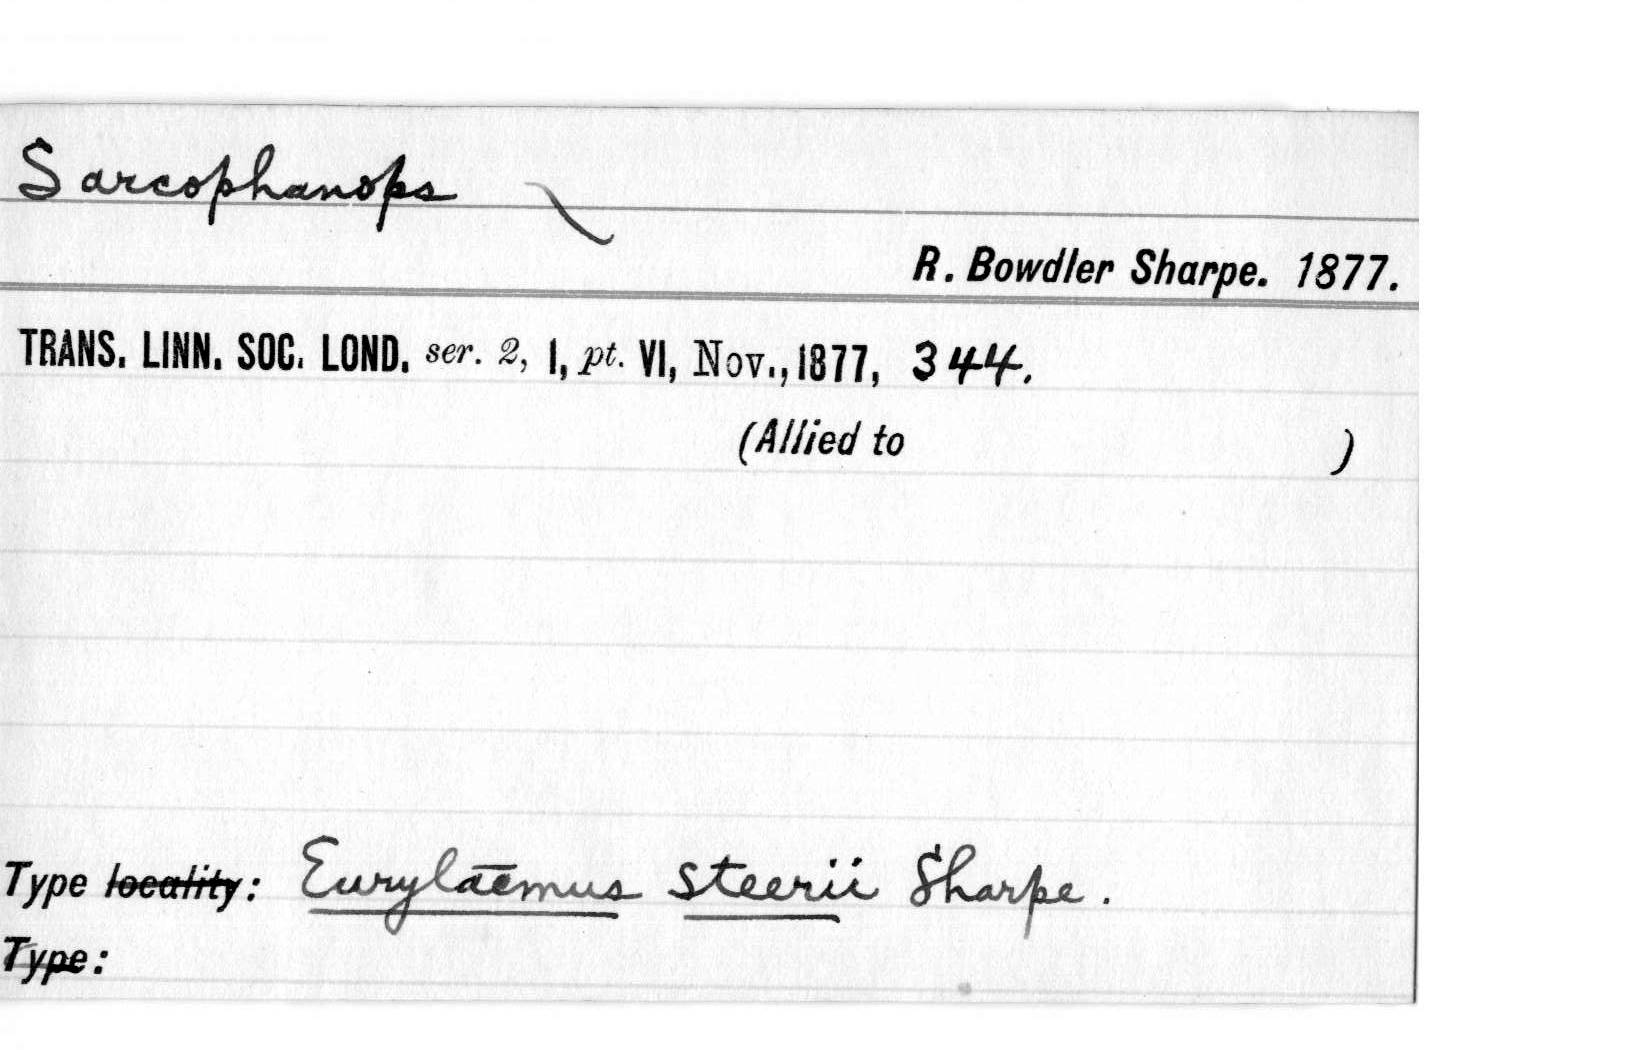 Sarcophanops
R. Bowdler Sharpe. 1877.
TRANS. LINN. SOC. LOND. ser. 2, I, pt. VI, Nov., 1877, 344.
(Allied to )
Type locality: Eurylaemus steerii Sharpe.
Type: